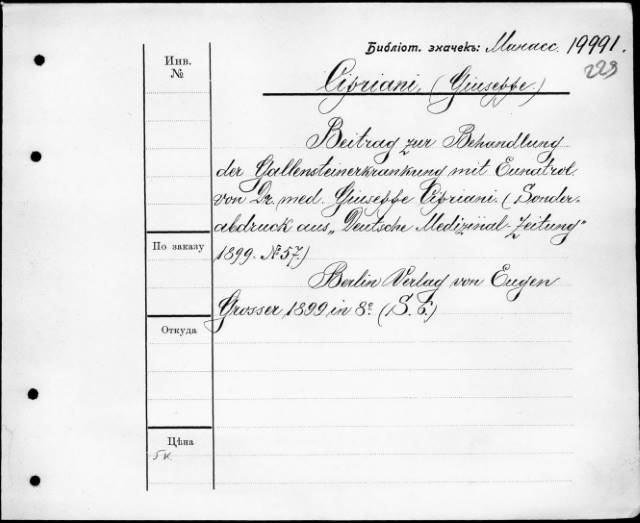 Библіот. значекъ: Манасс. 19991.
223
Инв.
№
Cipriani, (Giuseppe.)
Beitrag zur Behandlung
der Gallensteinerkrankung mit Eunatrol
von Dr. med. Giuseppe Cipriani. (Sonder-
abdruck aus „Deutsche Medizinal-Zeitung"
1899. № 57.)
По заказу
Berlin Verlag von Eugen
Grosser 1899 in 8º (S. 6.)
Откуда
Цѣна
5 к.